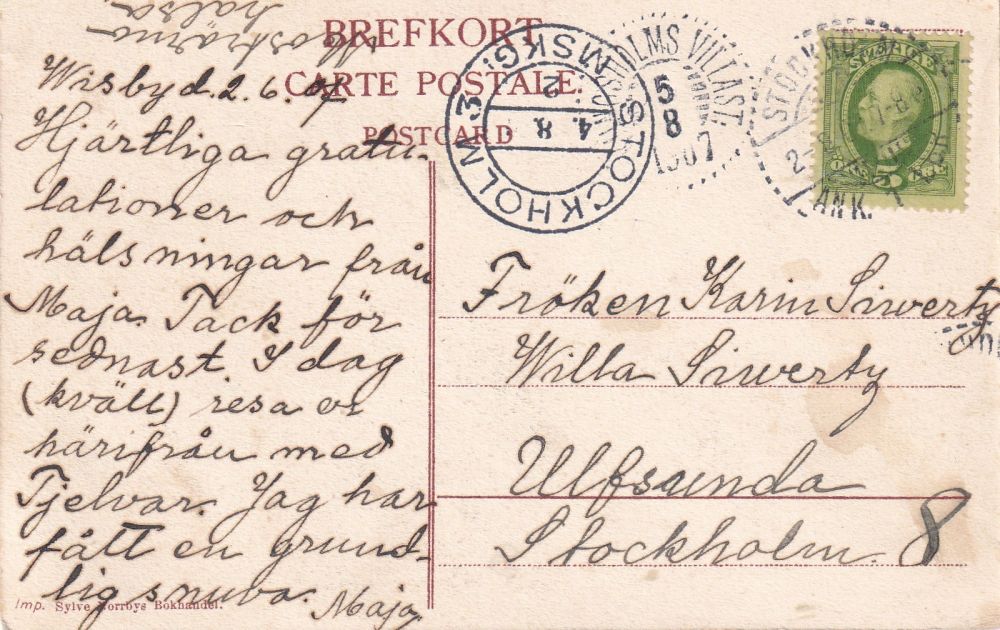 hälsa
BREFKORT
CARTE POSTALE.
POSTCARD
Wisby d. 2.6.07
Hjärtliga gratu-
lationer och
hälsningar från
Maja. Tack för
sednast. I dag
(kväll) resa vi
härifrån med
Tjelvar. Jag har
fått en grund-
lig snuva. Maja
Imp. Sylve Norrbys Bokhandel.
STOCKHOLM 3
2
4. 8.
HOLMS VILLAST
5
8
1907
ANK. 1
SVERIGE
5
Fröken Karin Siwertz
Willa Siwertz
Ulfsunda
Stockholm. 8